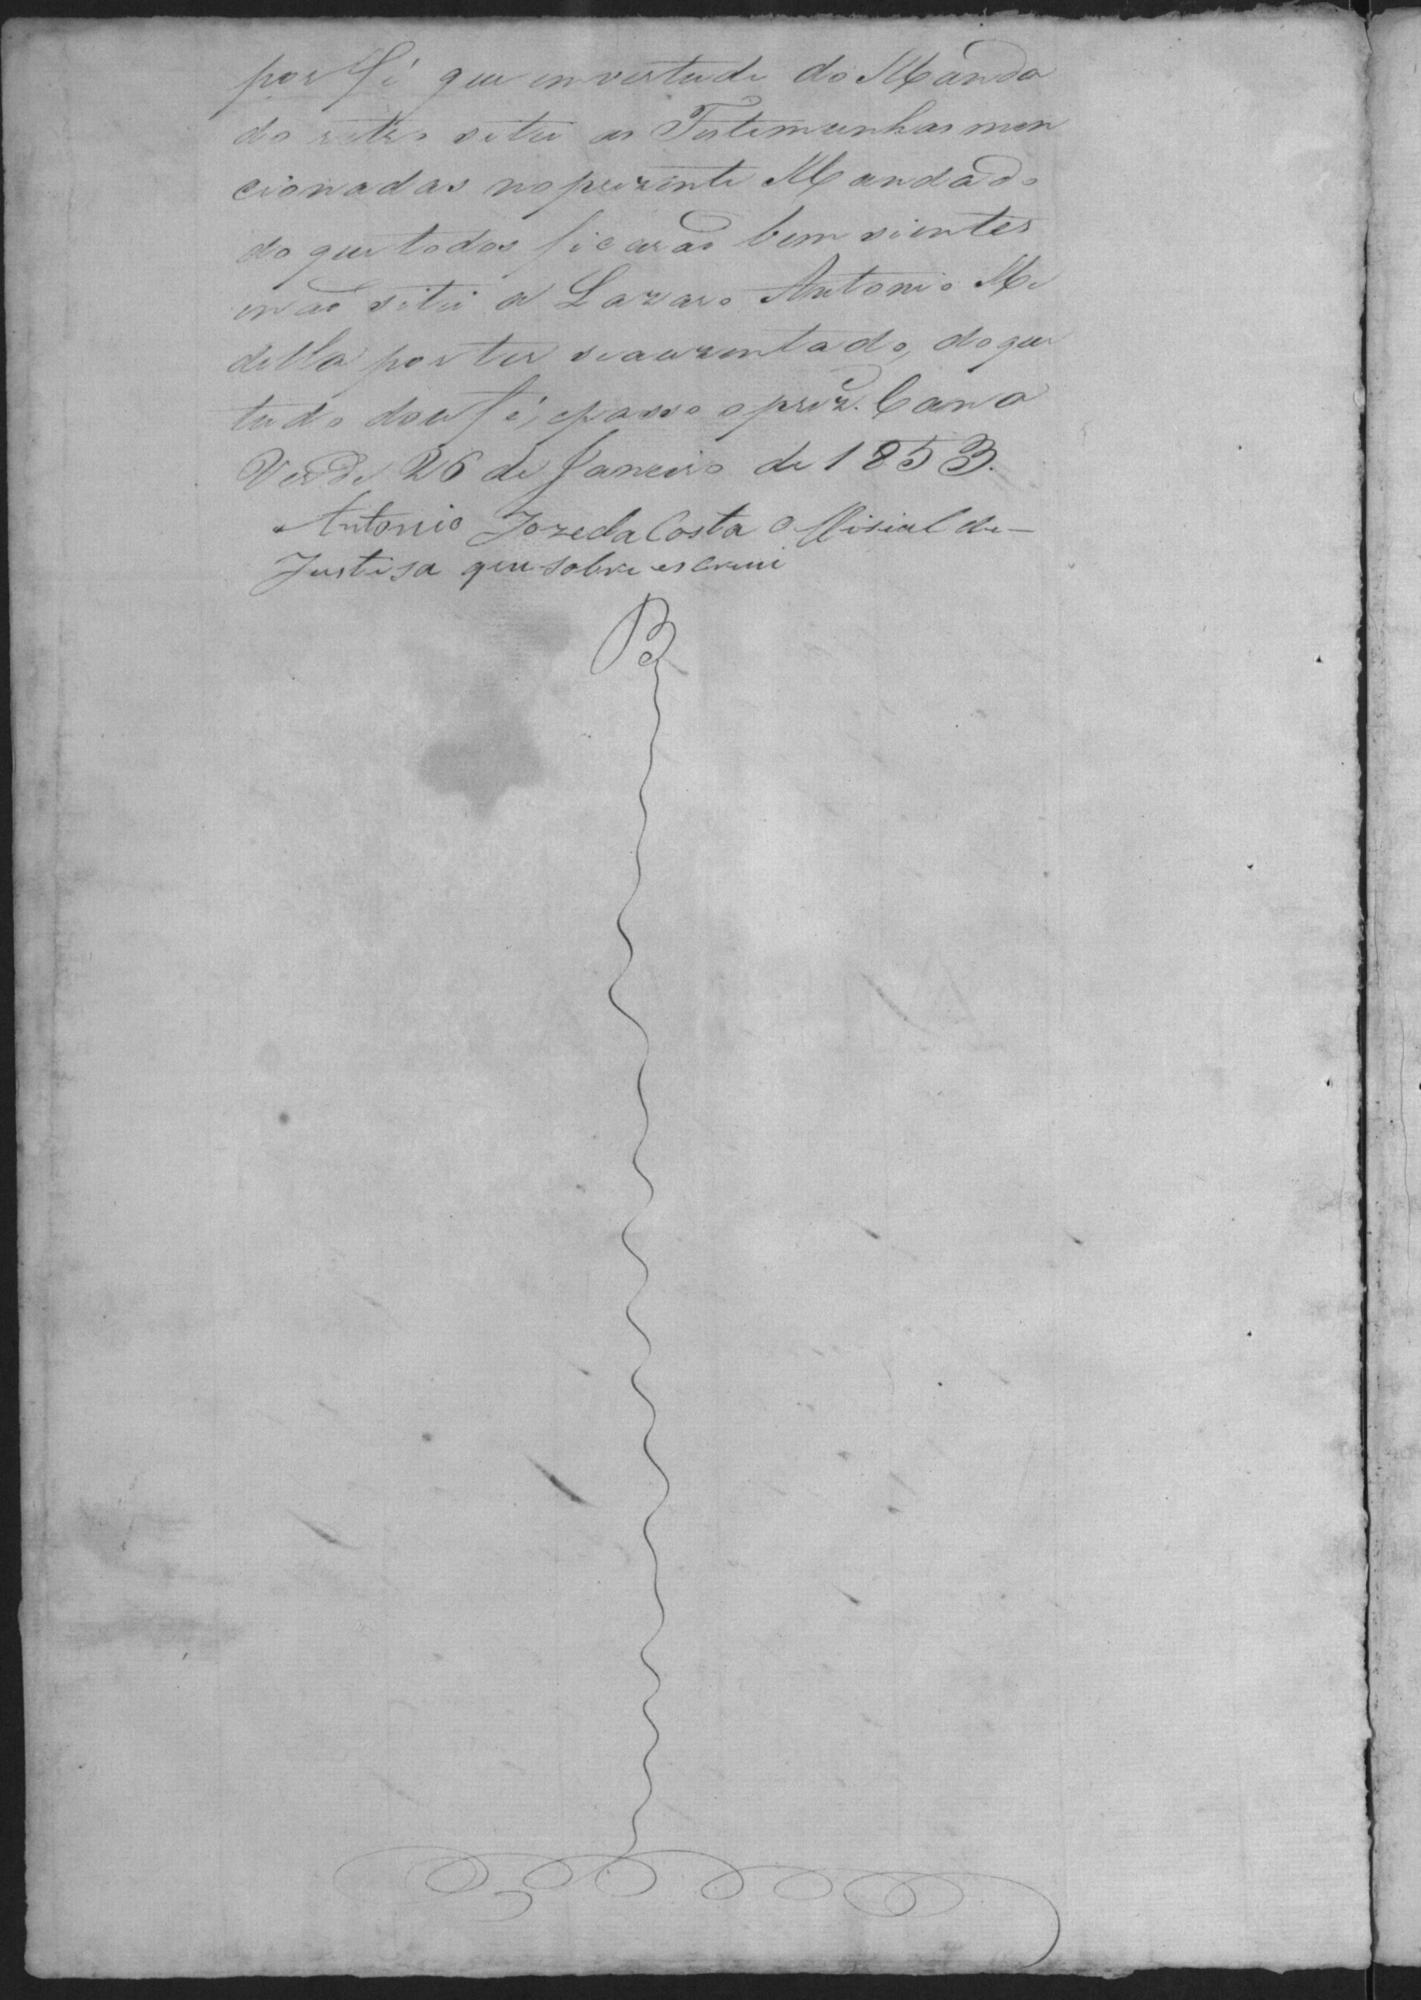 por fé que em vertude do Manda
do retro sitei as Testemunhas men
cionadas no prezente Mandado
do que todos ficarão bem sientes
e não sitei a Lazaro Antonio Me
dello por ter se auzentado, do que
tudo dou fé, e passo o prez.e Campo
Verde 26 de Janeiro de 1853.
Antonio Joze da Costa Offisial de
Justisa que sobre escrevi